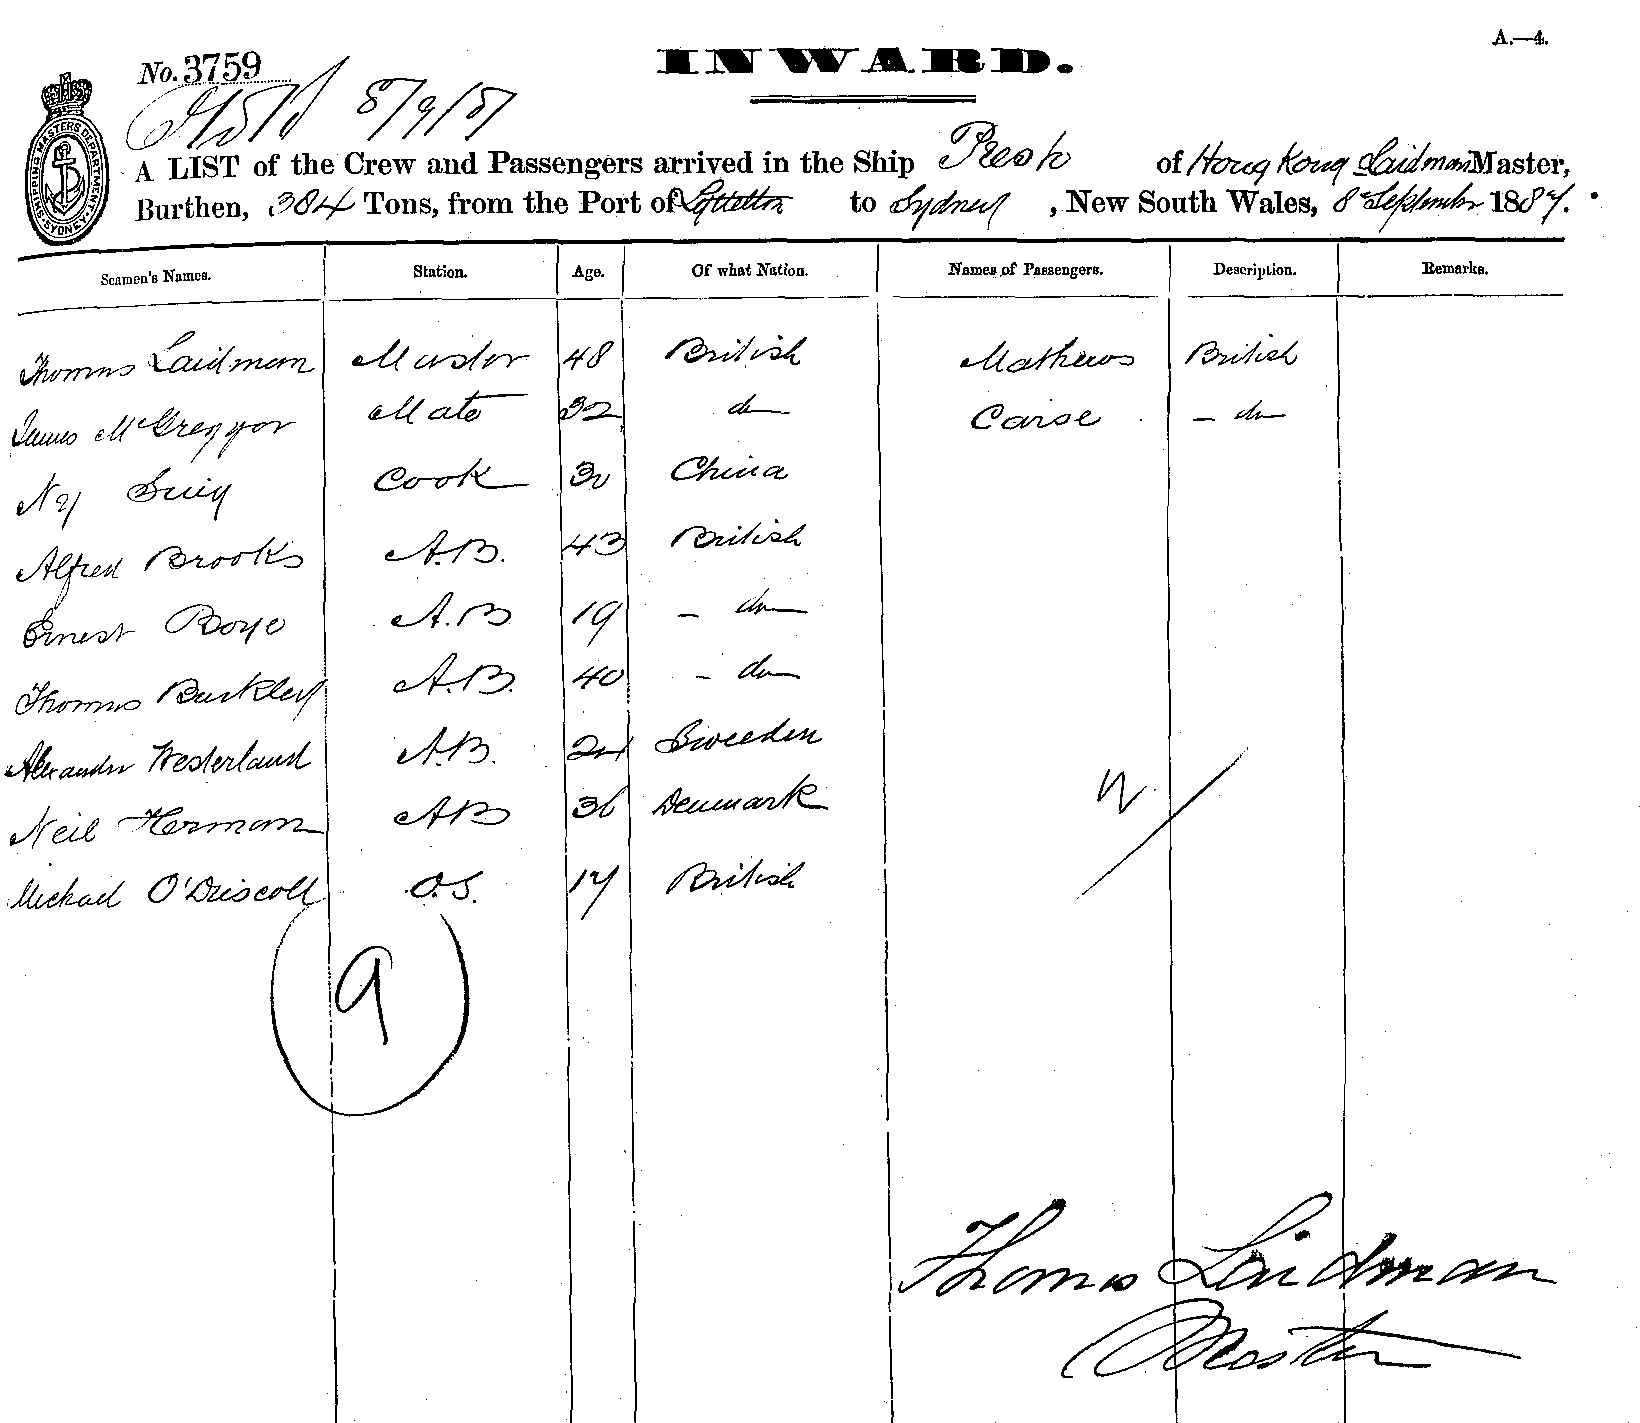 A.—4.
INWARD.
No. 3759
8/9/87
SHIPPING MASTERS DEPARTMENT SYDNEY
A LIST of the Crew and Passengers arrived in the Ship Pesh of Hong Kong Laidman Master,
Burthen, 384 Tons, from the Port of Lyttelton to Sydney, New South Wales, 8 September 1887.
Seamen's Names. Station. Age. Of what Nation. Names of Passengers. Description. Remarks.
Thomas Laidman Master 48 British Mathews British
James McGreggor Mate 32 do Carse - do
Ny Cook 30 China
Alfred Brooks A.B. 43 British
Ernest Boye A.B 19 - do
Thomas Buckley A.B. 40 - do
Alexander Westerland A.B. 24 Sweeden
Neil Herman AB 36 Denmark
Michael O'Driscoll O.S. 17 British
9
Thomas Laidman
Master